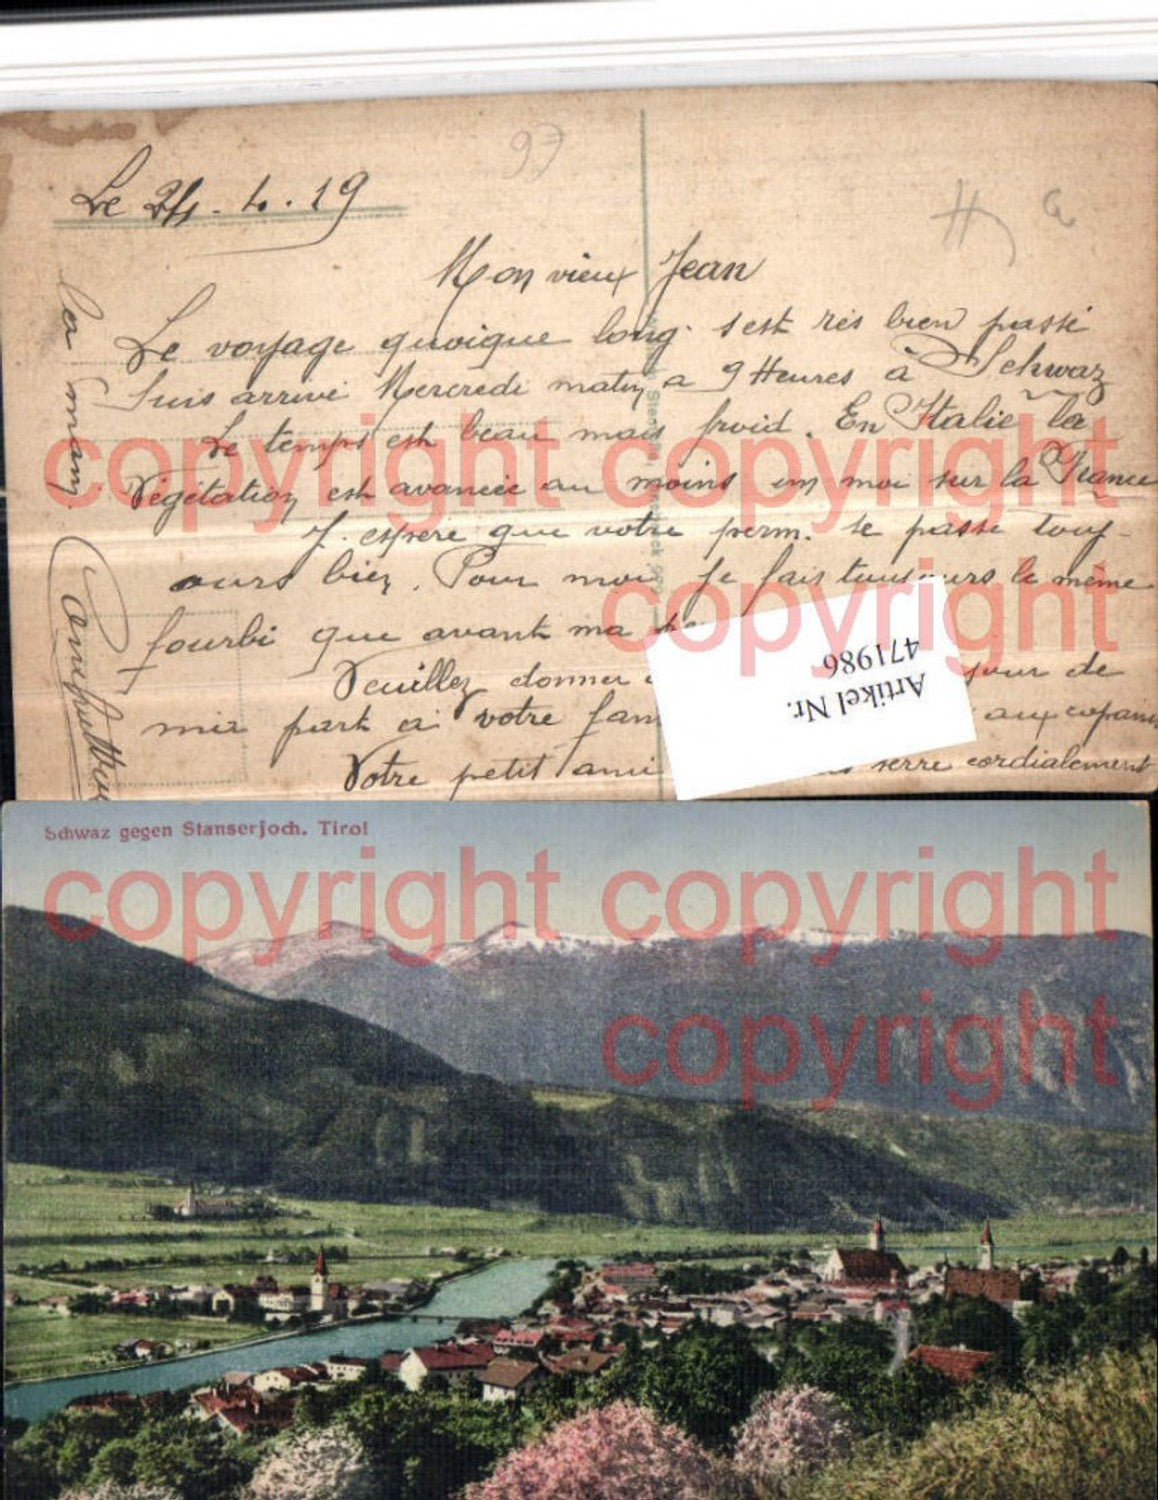 Le 24. 4. 19
Mon vieux Jean
Le voyage quoique long s'est très bien passé
Suis arrivé Mercredi matin a 9 Heures à Schwaz
Le temps est beau mais froid. En Italie la
Végétation est avancée au moins un moi sur la France
J. espere que votre perm. se passe touj-
ours bien. Pour moi je fais toujours le même
fourbi que avant ma
Veuillez donner jour de
ma part a votre fam aux copains
Votre petit ami serre cordialement
la main
Artikel Nr.
471986
copyright copyright
copyright
Schwaz gegen Stanserjoch. Tirol
copyright copyright
copyright